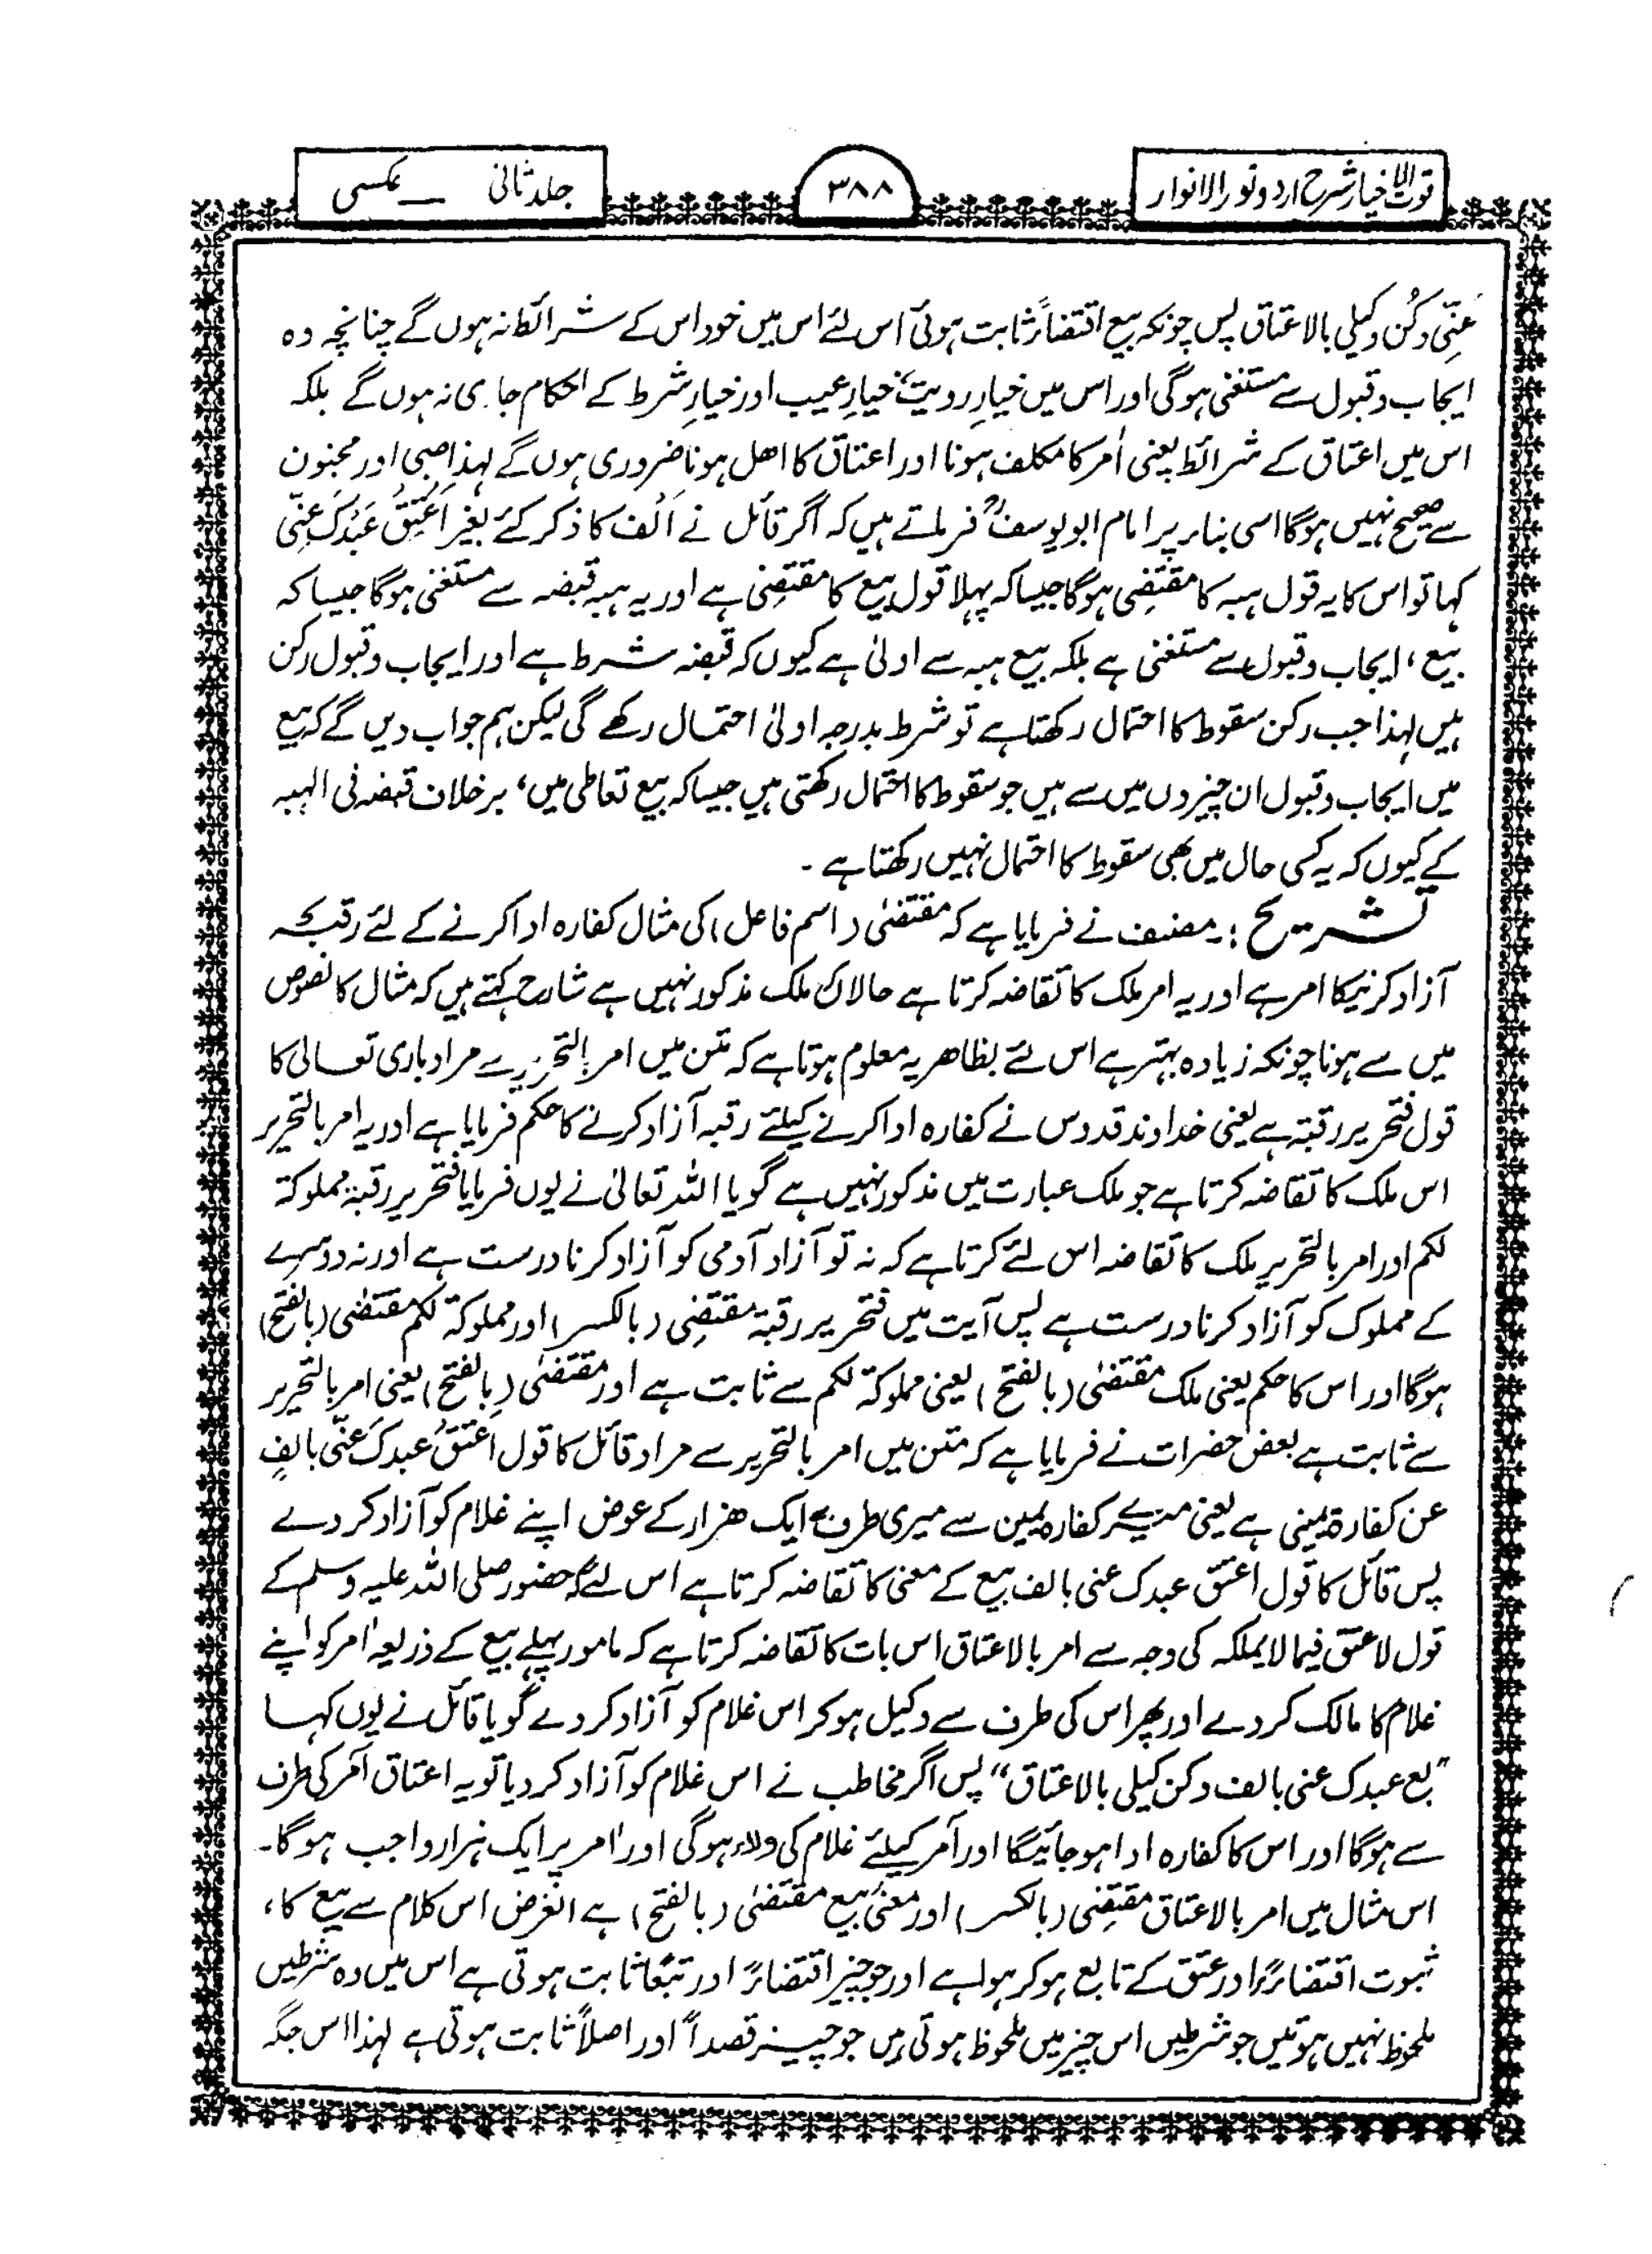 قوت الاخیار شرح اردو نور الانوار
۳۸۸
جلد ثانی ـــ عکسی
عَنِّی وکُن وکیلی بالاعتاق پس چونکہ بیع اقتضاءً ثابت ہوئی اس لئے اس میں خود اس کے شرائط نہ ہوں گے چنانچہ وہ
ایجاب وقبول سے مستغنی ہوگی اور اس میں خیارِ رویت، خیارِ عیب اور خیارِ شرط کے احکام جاری نہ ہوں گے بلکہ
اس میں اعتاق کے شرائط یعنی اٰمر کا مکلف ہونا اور اعتاق کا اھل ہونا ضروری ہوں گے لہذا صبی اور مجنون
سے صحیح نہیں ہوگا اسی بناء پر امام ابو یوسفؒ فرماتے ہیں کہ اگر قائل نے اَلف کا ذکر کئے بغیر اَعْتِقْ عَبْدَکَ عَنِّی
کہا تو اس کا یہ قول ہبہ کا مقتضِی ہوگا جیسا کہ پہلا قول بیع کا مقتضِی ہے اور یہ ہبہ قبضہ سے مستغنی ہوگا جیسا کہ
بیع، ایجاب وقبول سے مستغنی ہے بلکہ بیع ہبہ سے اولیٰ ہے کیوں کہ قبضہ شرط ہے اور ایجاب وقبول رکن
ہیں لہذا جب رکن سقوط کا احتمال رکھتا ہے تو شرط بدرجہ اولیٰ احتمال رکھے گی لیکن ہم جواب دیں گے کہ بیع
میں ایجاب وقبول ان چیزوں میں سے ہیں جو سقوط کا احتمال رکھتی ہیں جیسا کہ بیع تعاطی میں، برخلاف قبضہ فی الہبہ
کے کیوں کہ یہ کسی حال میں بھی سقوط کا احتمال نہیں رکھتا ہے ۔
تشریح :۔ مصنف نے فرمایا ہے کہ مقتضیٰ (اسم فاعل) کی مثال کفارہ ادا کرنے کے لئے رقبہ کے
آزاد کرنیکا امر ہے اور یہ امر ملک کا تقاضہ کرتا ہے حالانکہ ملک مذکور نہیں ہے شارح کہتے ہیں کہ مثال کا نصوص
میں سے ہونا چونکہ زیادہ بہتر ہے اس لئے بظاھر یہ معلوم ہوتا ہے کہ متن میں امر بالتحریر سے مراد باری تعالیٰ کا
قول فتحریر رقبۃ ہے یعنی خداوند قدوس نے کفارہ ادا کرنے کیلئے رقبہ آزاد کرنے کا حکم فرمایا ہے اور یہ امر بالتحریر
اس ملک کا تقاضہ کرتا ہے جو ملک عبارت میں مذکور نہیں ہے گویا اللہ تعالیٰ نے یوں فرمایا فتحریر رقبۃ مملوکۃ
لکم اور امر بالتحریر ملک کا تقاضہ اس لئے کرتا ہے کہ نہ تو آزاد آدمی کو آزاد کرنا درست ہے اور نہ دوسرے
کے مملوک کو آزاد کرنا درست ہے پس آیت میں فتحریر رقبۃ مقتضِی (بالکسر) اور مملوکۃ لکم مقتضٰی (بالفتح)
ہوگا اور اس کا حکم یعنی ملک مقتضیٰ (بالفتح) یعنی مملوکۃ لکم سے ثابت ہے اور مقتضیٰ (بالفتح) یعنی امر بالتحریر
سے ثابت ہے بعض حضرات نے فرمایا ہے کہ متن میں امر بالتحریر سے مراد قائل کا قول اعتق عبدک عنّی بالفٍ
عن کفارۃ یمینی ہے یعنی میرے کفارہ یمین سے میری طرف سے ایک ھزار کے عوض اپنے غلام کو آزاد کر دے
پس قائل کا قول اعتق عبدک عنی بالف بیع کے معنی کا تقاضہ کرتا ہے اس لئے کہ حضور صلی اللہ علیہ وسلم کے
قول لا عتق فیما لا یملکہ کی وجہ سے امر بالاعتاق اس بات کا تقاضہ کرتا ہے کہ مامور پہلے بیع کے ذریعہ اٰمر کو اپنے
غلام کا مالک کر دے اور پھر اس کی طرف سے وکیل ہوکر اس غلام کو آزاد کر دے گویا قائل نے یوں کہا
”بع عبدک عنی بالف وکن کیلی بالاعتاق“ پس اگر مخاطب نے اس غلام کو آزاد کر دیا تو یہ اعتاق اٰمر کی طرف
سے ہوگا اور اس کا کفارہ ادا ہوجائیگا اور آمر کیلئے غلام کی ولاء ہوگی اور اٰمر پر ایک ہزار واجب ہوگا۔
اس مثال میں امر بالاعتاق مقتضِی (بالکسر) اور معنیٔ بیع مقتضیٰ (بالفتح) ہے الغرض اس کلام سے بیع کا،
ثبوت اقتضاءً اور عتق کے تابع ہوکر ہوا ہے اور جو چیز اقتضاءً اور تبعًا ثابت ہوتی ہے اس میں وہ شرطیں
ملحوظ نہیں ہوتیں جو شرطیں اس چیز میں ملحوظ ہوتی ہیں جو چیز قصداً اور اصلاً ثابت ہوتی ہے لہذا اس جگہ